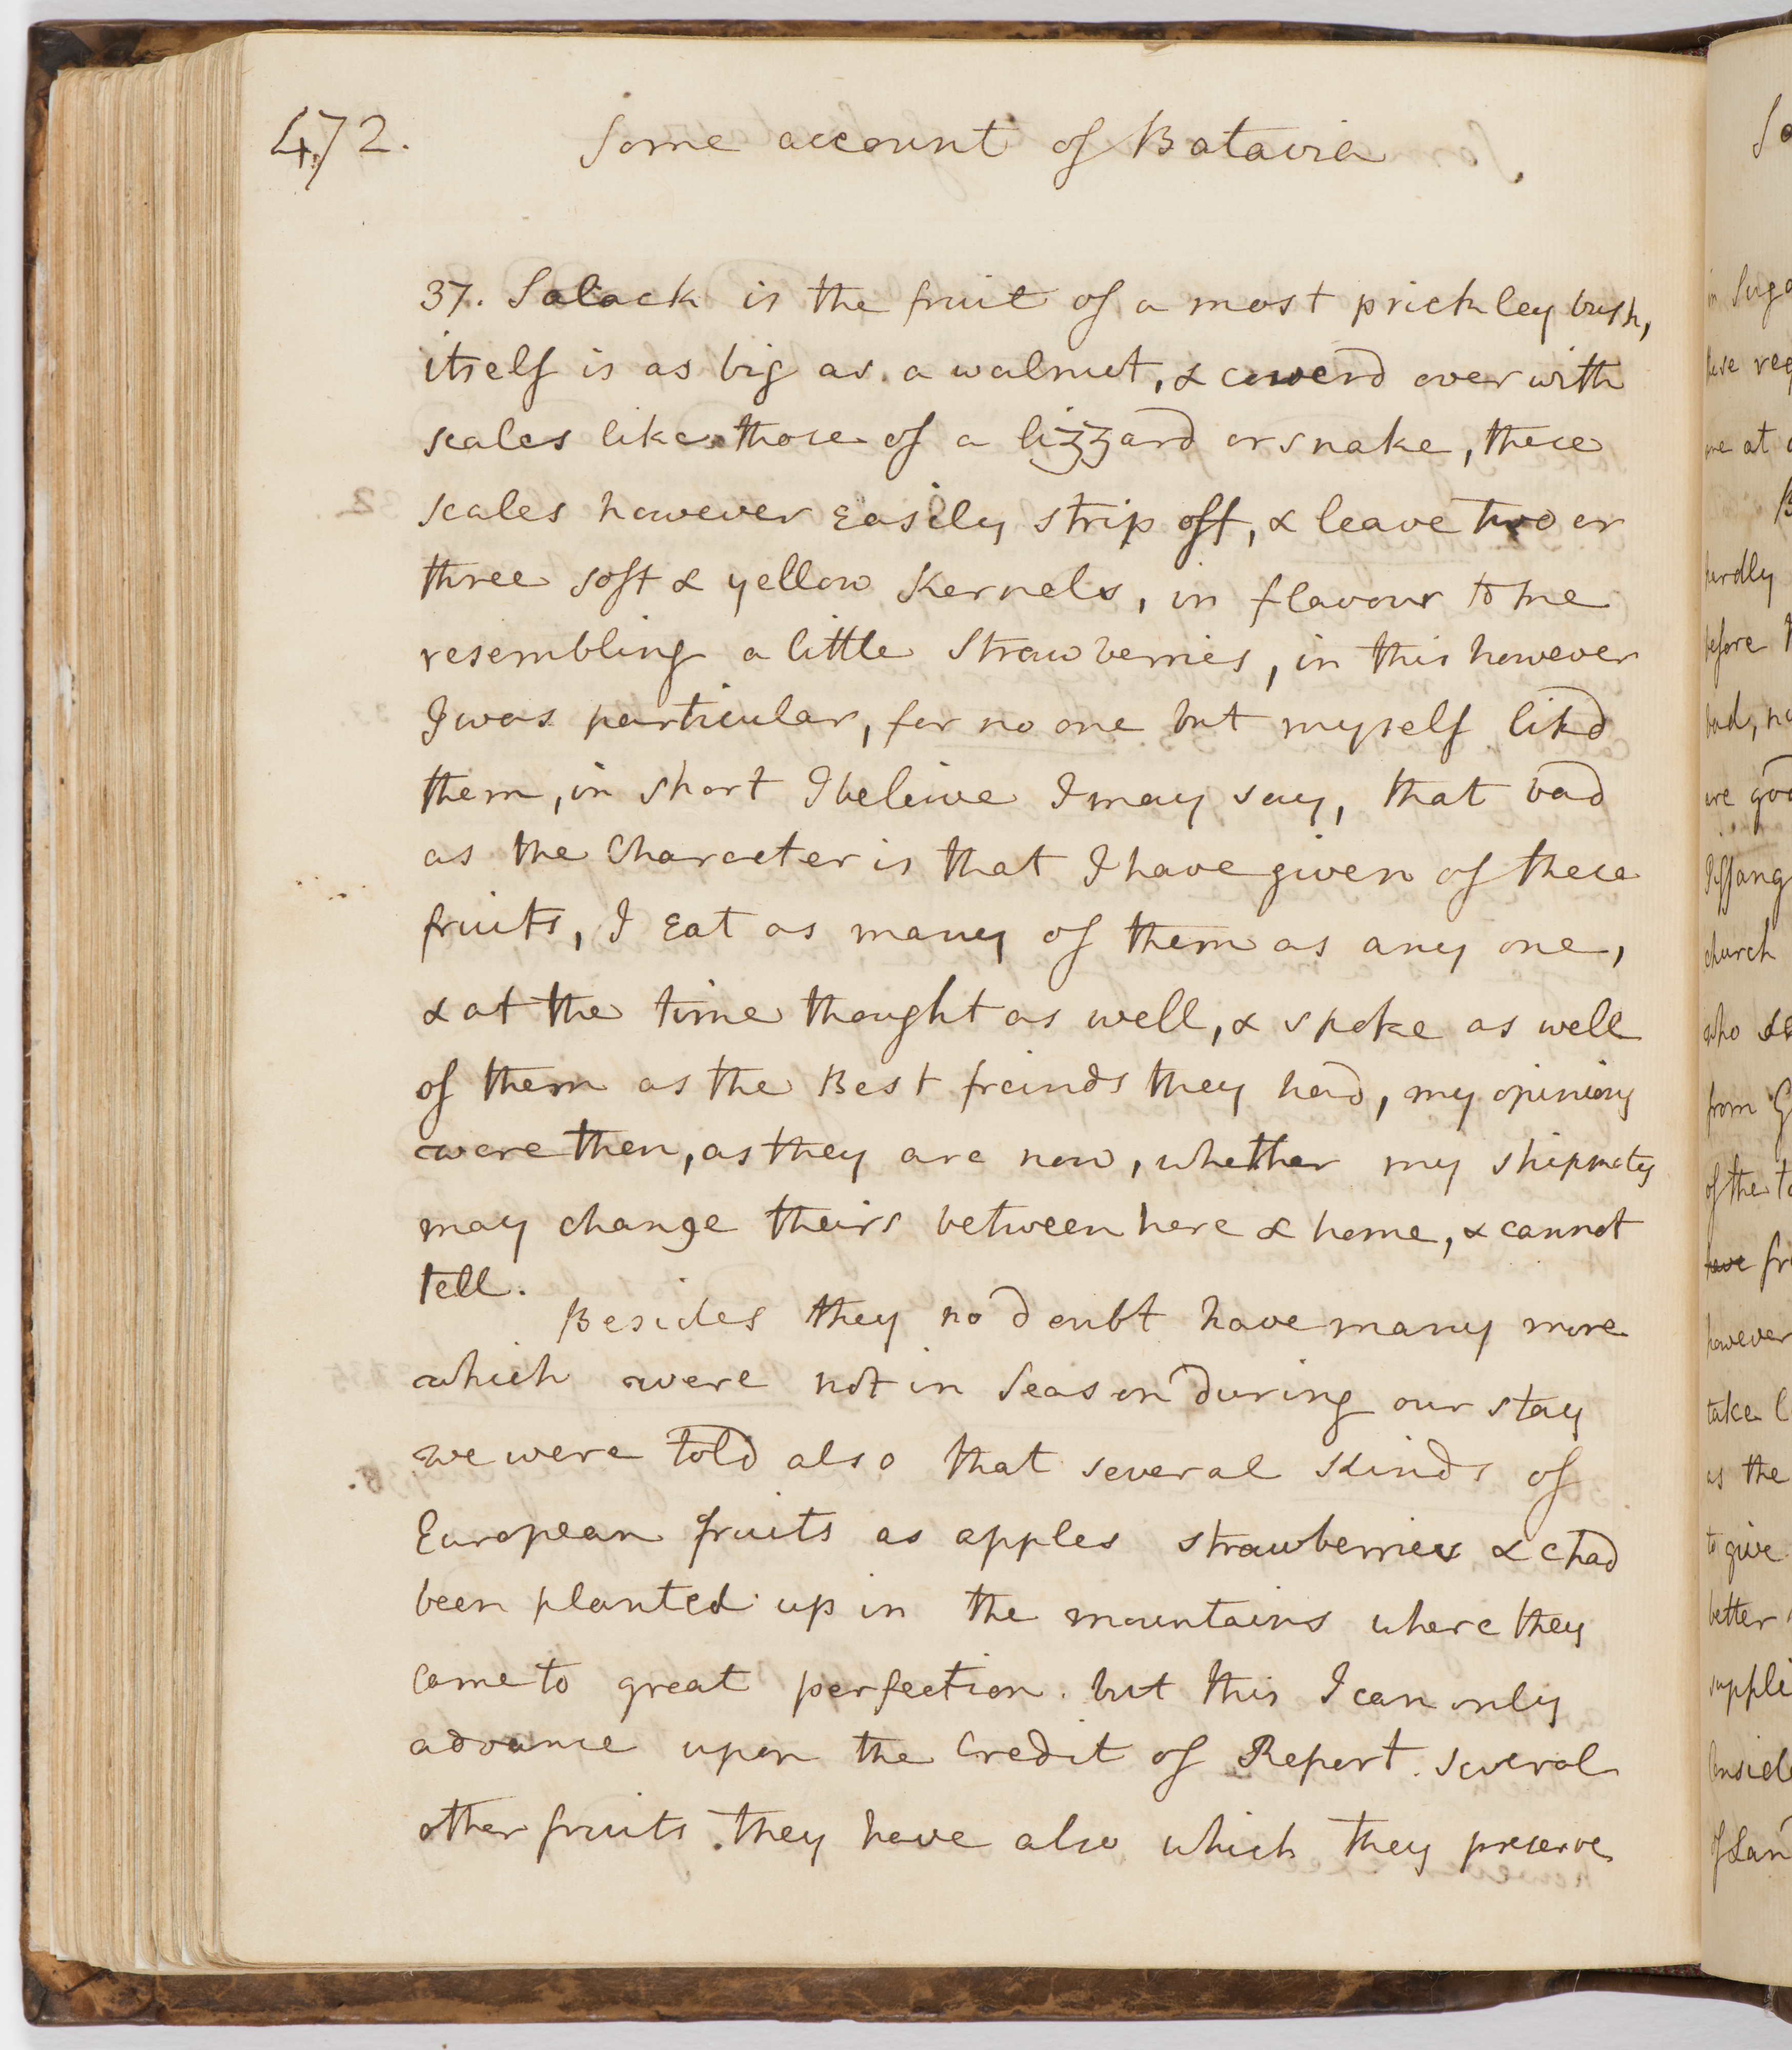 472. Some account of Batavia.
37. Salack is the fruit of a most prickley bush,
itself is as big as a walnut, & coverd over with
scales like those of a lizzard or snake, these
scales however Easily strip off, & leave two or
three soft & yellow Kernels, in flavour to me
resembling a little Strawberries, in this however
I was particular, for no one but myself likd
them, in short I beleive I may say, that bad
as the Character is that I have given of these
fruits, I Eat as many of them as any one,
& at the time thought as well, & spoke as well
of them as the Best freinds they had, my opinions
were then, as they are now, whether my shipmates
may change theirs between here & home, & cannot
tell.
Besides they no doubt have many more
which were not in Season during our stay
we were told also that several Kinds of
European fruits as apples strawberries &c had
been planted up in the mountains where they
Came to great perfection. but this I can only
advance upon the Credit of Report. several
other fruits they have also which they preserve
So
in Suga
these req
one at
B
hardly
before
bad, no
are good
Pissang
church
who
from G
of the to
have fr
however
take
as the
to give
better
suppli
Conside
of Lan